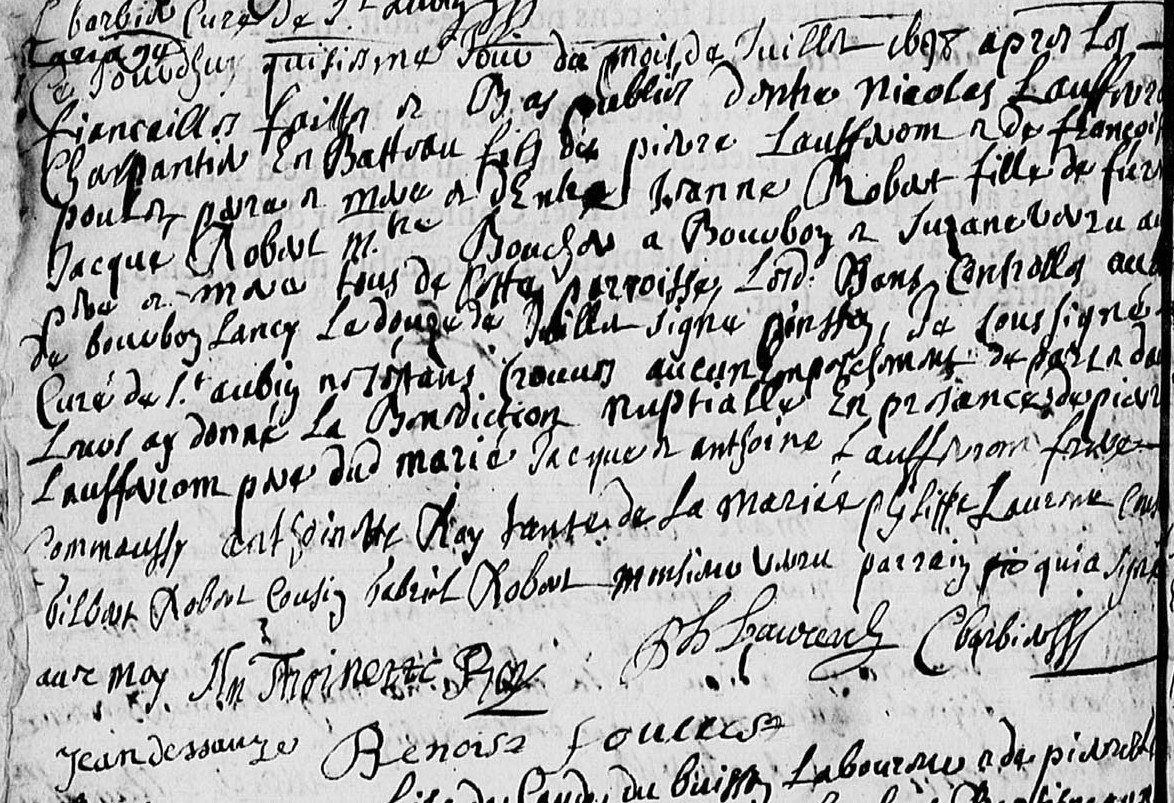 C barbier Curé de St Aubin
mariage
Ce Jourdhuy quinsiesme Jour du mois de Juillet 1698 apres les
fiancailles faittes et Bans publiés dentre Nicolas Lauffrom
Charpantier En Batteau fils de pierre Lauffrom et de françois
poulet pere et mere et dEntre Jeanne Robert fille de feu
Jacque Robert mtre Boucher a Bourbon et Suzane Veru
pere et mere tous de Cette parroisse, Lesd. Bans Controllés au
de bourbon Lancy Le douze de Juillet signe pinsson, Je soussigné
Curé de St aubin nestans trouvés aucuns Empeschement de part et da
Leurs ay donné La Benediction Nuptialle En presance de pierre
Lauffrom pere dud marié Jacque et anthoine Lauffrom frere
Commaussy anthoinette Ray tante de La Mariée philippe Laurent
Gilbert Robert Cousin Gabriel Robert monsieur Veru parrain qui a signé
avec moy An Thoinette Rey Ph Laurent C barbier
Jean dessauze Benoist foullest
fils de Claude du buisson Laboureur et de pierrette